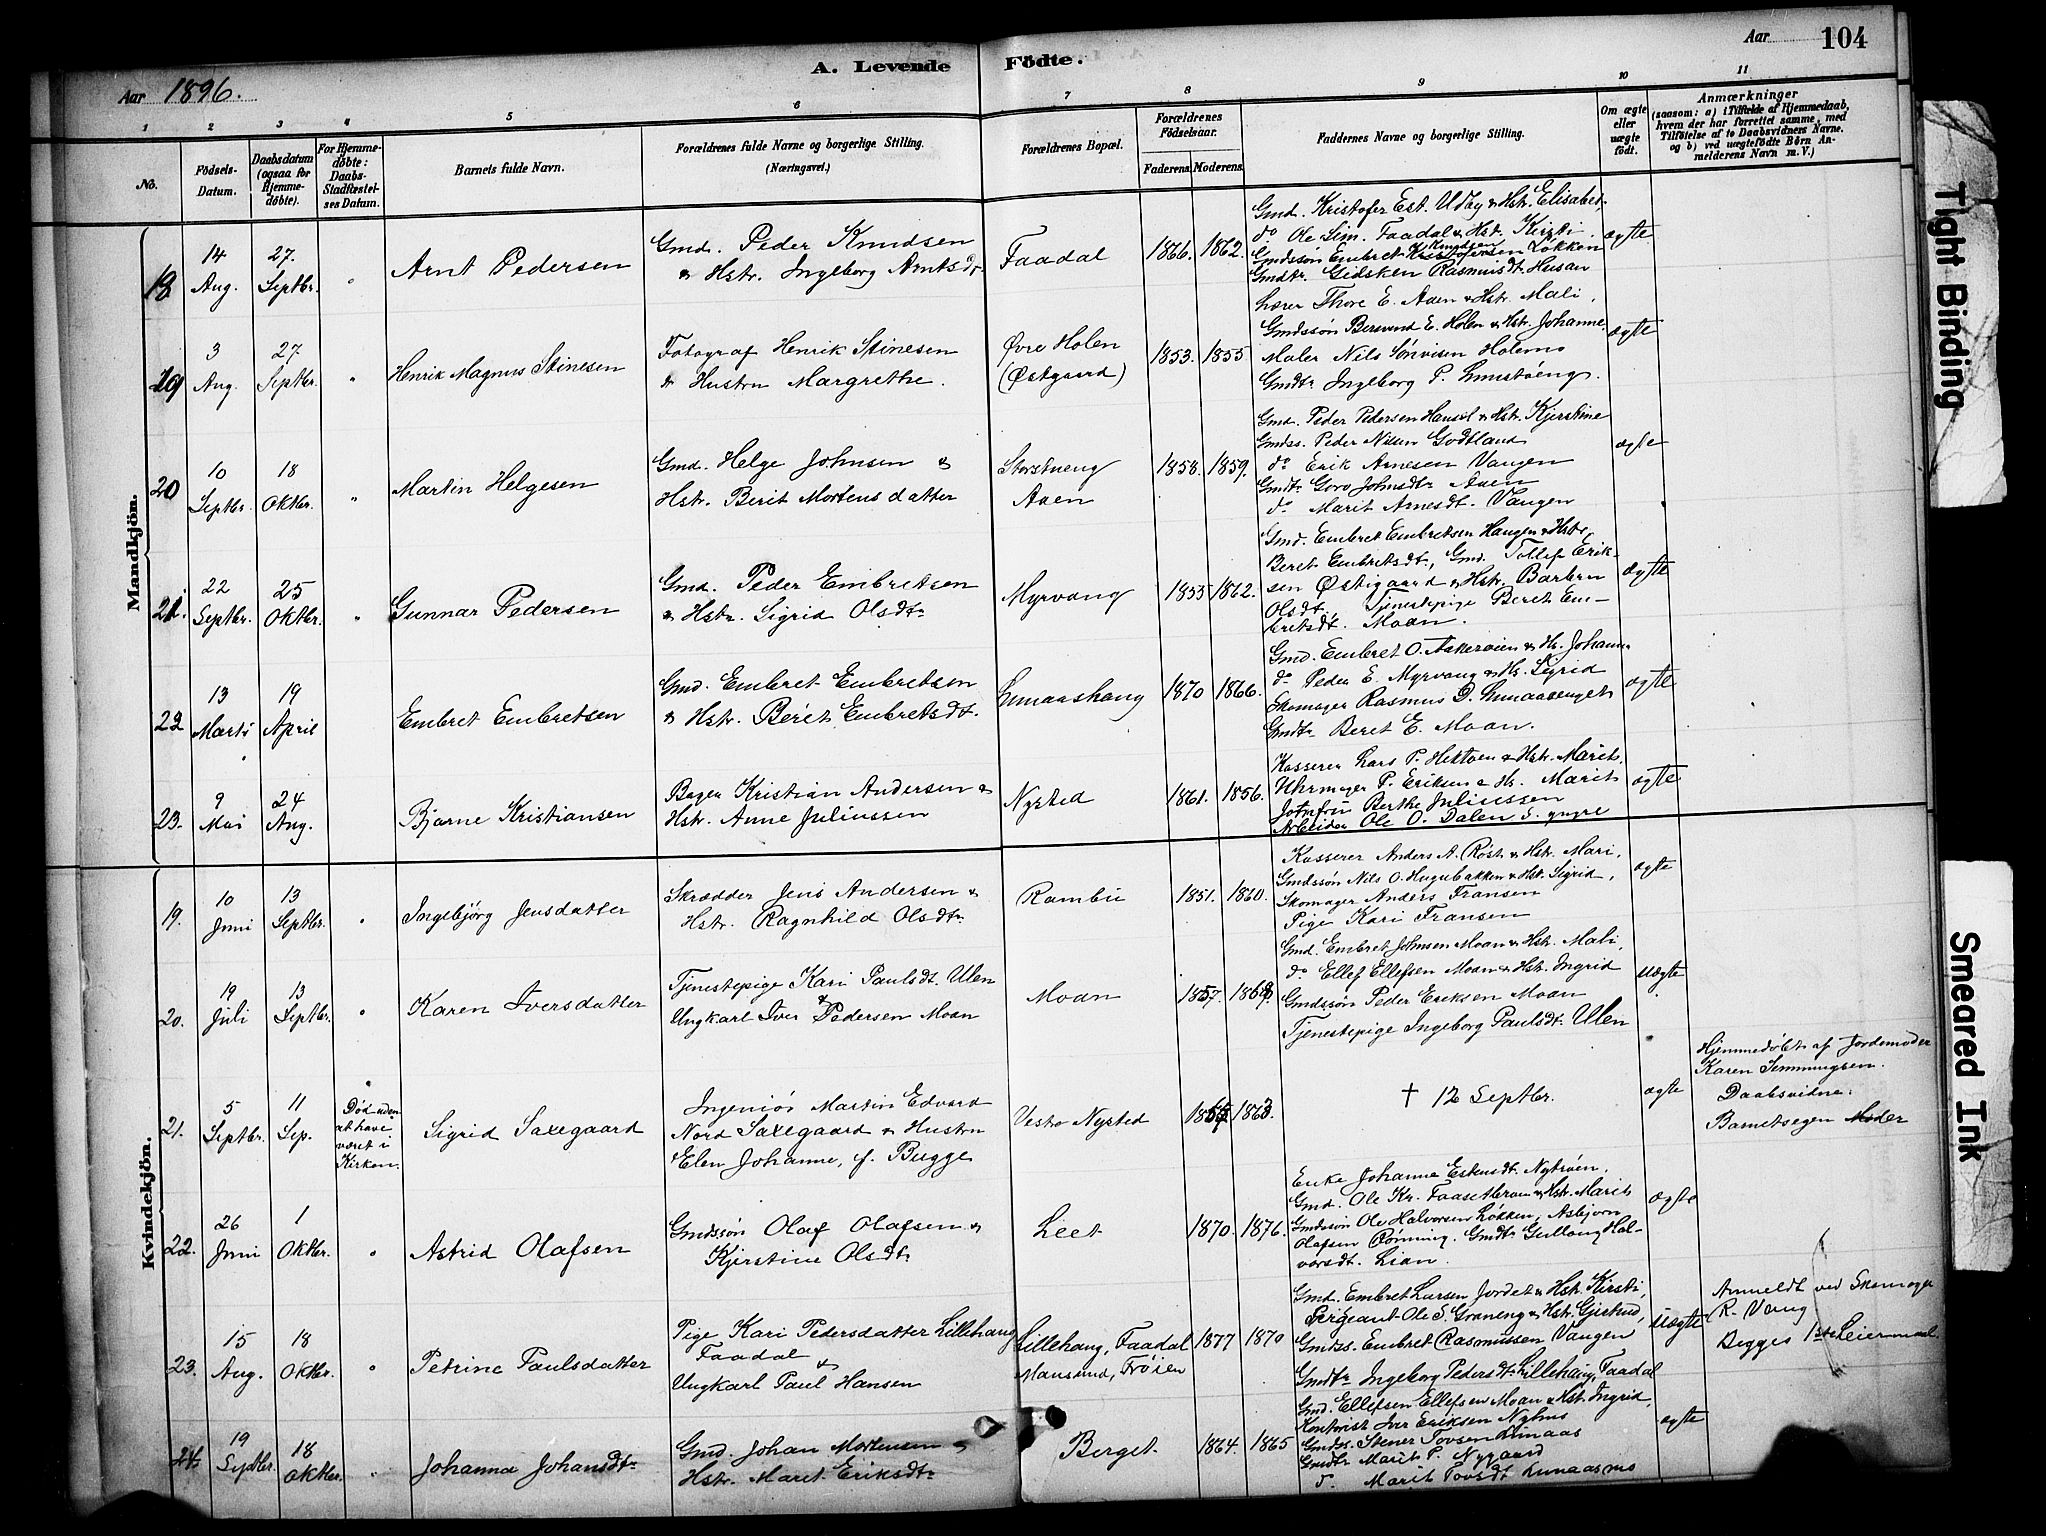 Aar 1896.
A. Levende Födte.
Aar 104
1 2 3 4 5 6 7 8 9 10 11
No.
Födsels-Datum.
Daabsdatum (ogsaa for Hjemme-döbte).
For Hjemme-döbte: Daabs-Stadfæstel-ses Datum.
Barnets fulde Navn.
Forældrenes fulde Navne og borgerlige Stilling.
(Næringsvei.)
Forældrenes Bopæl.
Forældrenes Födselsaar.
Faderens. Moderens.
Faddernes Navne og borgerlige Stilling.
Om ægte eller uægte födt.
Anmærkninger
(saasom: a) i Tilfælde af Hjemmedaab,
hvem der har forrettet samme, med
Tilföielse af to Daabsvidners Navne.
og b) ved uægtefödte Börn An-
melderens Navn m. V.)
Mandkjön.
14 Aug.
27. Septbr.
"
Arnt Pedersen
Gmd. Peder Knudsen
& Hstr. Ingeborg Arntsdr.
Faadal
1866. 1862.
Gmd. Kristofer Est. Udøy & Hst. Elisabet,
do Ole Sim. Faadal & Hst. Kirsti.
Gmdssøn Embret Knudsen Løkken
Gmdtr. Gidsken Rasmusdt. Husan
ægte
3 Aug.
27. Septbr.
"
Henrik Magnus Stinesen
Fotograf Henrik Stinesen
& Hustru Margrethe.
Øvre Holen
(Østgaard)
1853. 1855
Lærer Thore E. Aaen & Hst. Mali,
Gmdssøn Bersvend E. Holen & Hst. Johanne.
Maler Nils Sønvisen Holemo
Gmdtr Ingeborg P.
ægte
20
10 Septbr.
18 Oktbr.
"
Martin Helgesen
Gmd. Helge Johnsen &
Hstr. Berit Mortensdatter
Storstueng
Aaen
1858. 1859.
Gmd. Peder Pedersen & Hst. Kjerstine
Gmdss. Peder Nilsen Godtland
do Erik Arnesen Vangen
Gmdtr Goro Johnsdtr Aaen
do Marit Arnesdt. Vangen
ægte
21.
22 Septbr.
25 Oktbr.
"
Gunnar Pedersen
Gmd. Peder Embretsen
& Hstr. Sigrid Olsdtr
Myrvang
1855 1862.
Gmd. Embret Embretsen Haugen & Hstr
Beret Embretsdt., Gmd. Tollef Erik-
sen Østigaard & Hstr. Barbru
Olsdt. Tjenestepige Beret Em-
bretsdt. Moan.
ægte
22
13 Marts
19 April
Embret Embretsen
Gmd. Embret Embretsen
& Hstr. Beret Embretsdt.
Lunaashaug
1870 1866.
Gmd. Embret O. & Hs. Johanne
do Peder E. Myrvang & Hs. Sigrid
Skomager Rasmus D. Lunaasenget
Gmdtr Beret E. Moan.
ægte
23.
9 Mai
24 Aug.
Bjarne Kristiansen
Bager Kristian Andersen &
Hstr. Anne Juliussen
Nysted
1861. 1856.
Kasserer Lars P. Hektoen & Hstr. Marit.
Uhrmager P. Eriksen & Hs. Marit
Jomfru Berthe Juliussen
Arbeider Ole O. Dalen d. yngre
ægte
Kvindekjön.
19.
10 Juni
13 Septbr.
"
Ingebjörg Jensdatter
Skrædder Jens Andersen &
Hstr. Ragnhild Olsdtr
Rambu
1851. 1860.
Kasserer Anders A. Röst & Hst. Mari.
Gmdssøn Nils O. Hugubakken & Hst. Sigrid,
Skomager Anders Fransen
Pige Kari Fransen
ægte
20.
19 Juli
13 Septbr.
"
Karen Iversdatter
Tjenestepige Kari Paulsdt. Ulen
& Ungkarl Iver Pedersen Moan
Moan
1857.
Gmd. Embret Johnsen Moan & Hst. Mali,
do Ellef Ellefsen Moan & Hst. Ingrid
Gmdssøn Peder Eriksen Moan
Tjenestepige Ingeborg Paulsdt. Ulen
uægte
21.
5 Septbr.
11 Sep.
Død uden
at have
været i
Kirken.
Sigrid Saxegaard
Ingeniør Martin Edvard
Nord Saxegaard & Hustru
Elen Johanne, f. Bugge
Vestre Nysted
1863.
† 12 Septbr.
ægte
Hjemmedøbt af Jordemoder
Karen Simmingsen.
Daabsvidne:
Barnets egen Moder
22.
26 Juni
1 Oktbr.
"
Astrid Olafsen
Gmdssøn Olaf Olafsen &
Kjerstine Olsdtr
Leet
1870. 1876.
Enke Johanne Estensdt. Nytrøen.
Gmd. Ole Kr. & Hst. Marit
Gmdssøn Ole Halvorsen Løkken, Asbjørn
Olafsen Rønning. Gmdtr Gullaug Hal-
vorsdt. Lian.
ægte
23.
15 Aug.
18 Oktbr.
"
Petrine Paulsdatter
Pige Kari Pedersdatter Lillehaug
Faadal &
Ungkarl Paul Hansen
Lillehaug, Faadal
Mausund, Frøien
1877 1870
Gmd. Embret Larsen Jordet & Hst. Kirsti,
Sergeant Ole S. Grøneng & Hst. Gjertrud,
Gmdss. Embret Rasmussen Vangen
Gmdtr Ingeborg Pedersdt. Lillehaug, Faadal
uægte
Anmeldt ved Skomager
R. Vang
Begges 1ste Leiermaal.
24.
19 Septbr.
18 Oktbr.
"
Johanna Johansdtr
Gmd. Johan Mortensen &
Hstr. Maret Eriksdtr
Berget.
1864. 1865
Gmd. Ellefsen Ellefsen Moan & Hst. Ingrid,
Kontorist Iver Eriksen Nyhus
Gmdss. Stener Tovsen Lunaas
Gmdtr Marit P. Nygaard
d. Marit Tovsdt Lunaasmo
ægte
Tight Binding
Smeared Ink